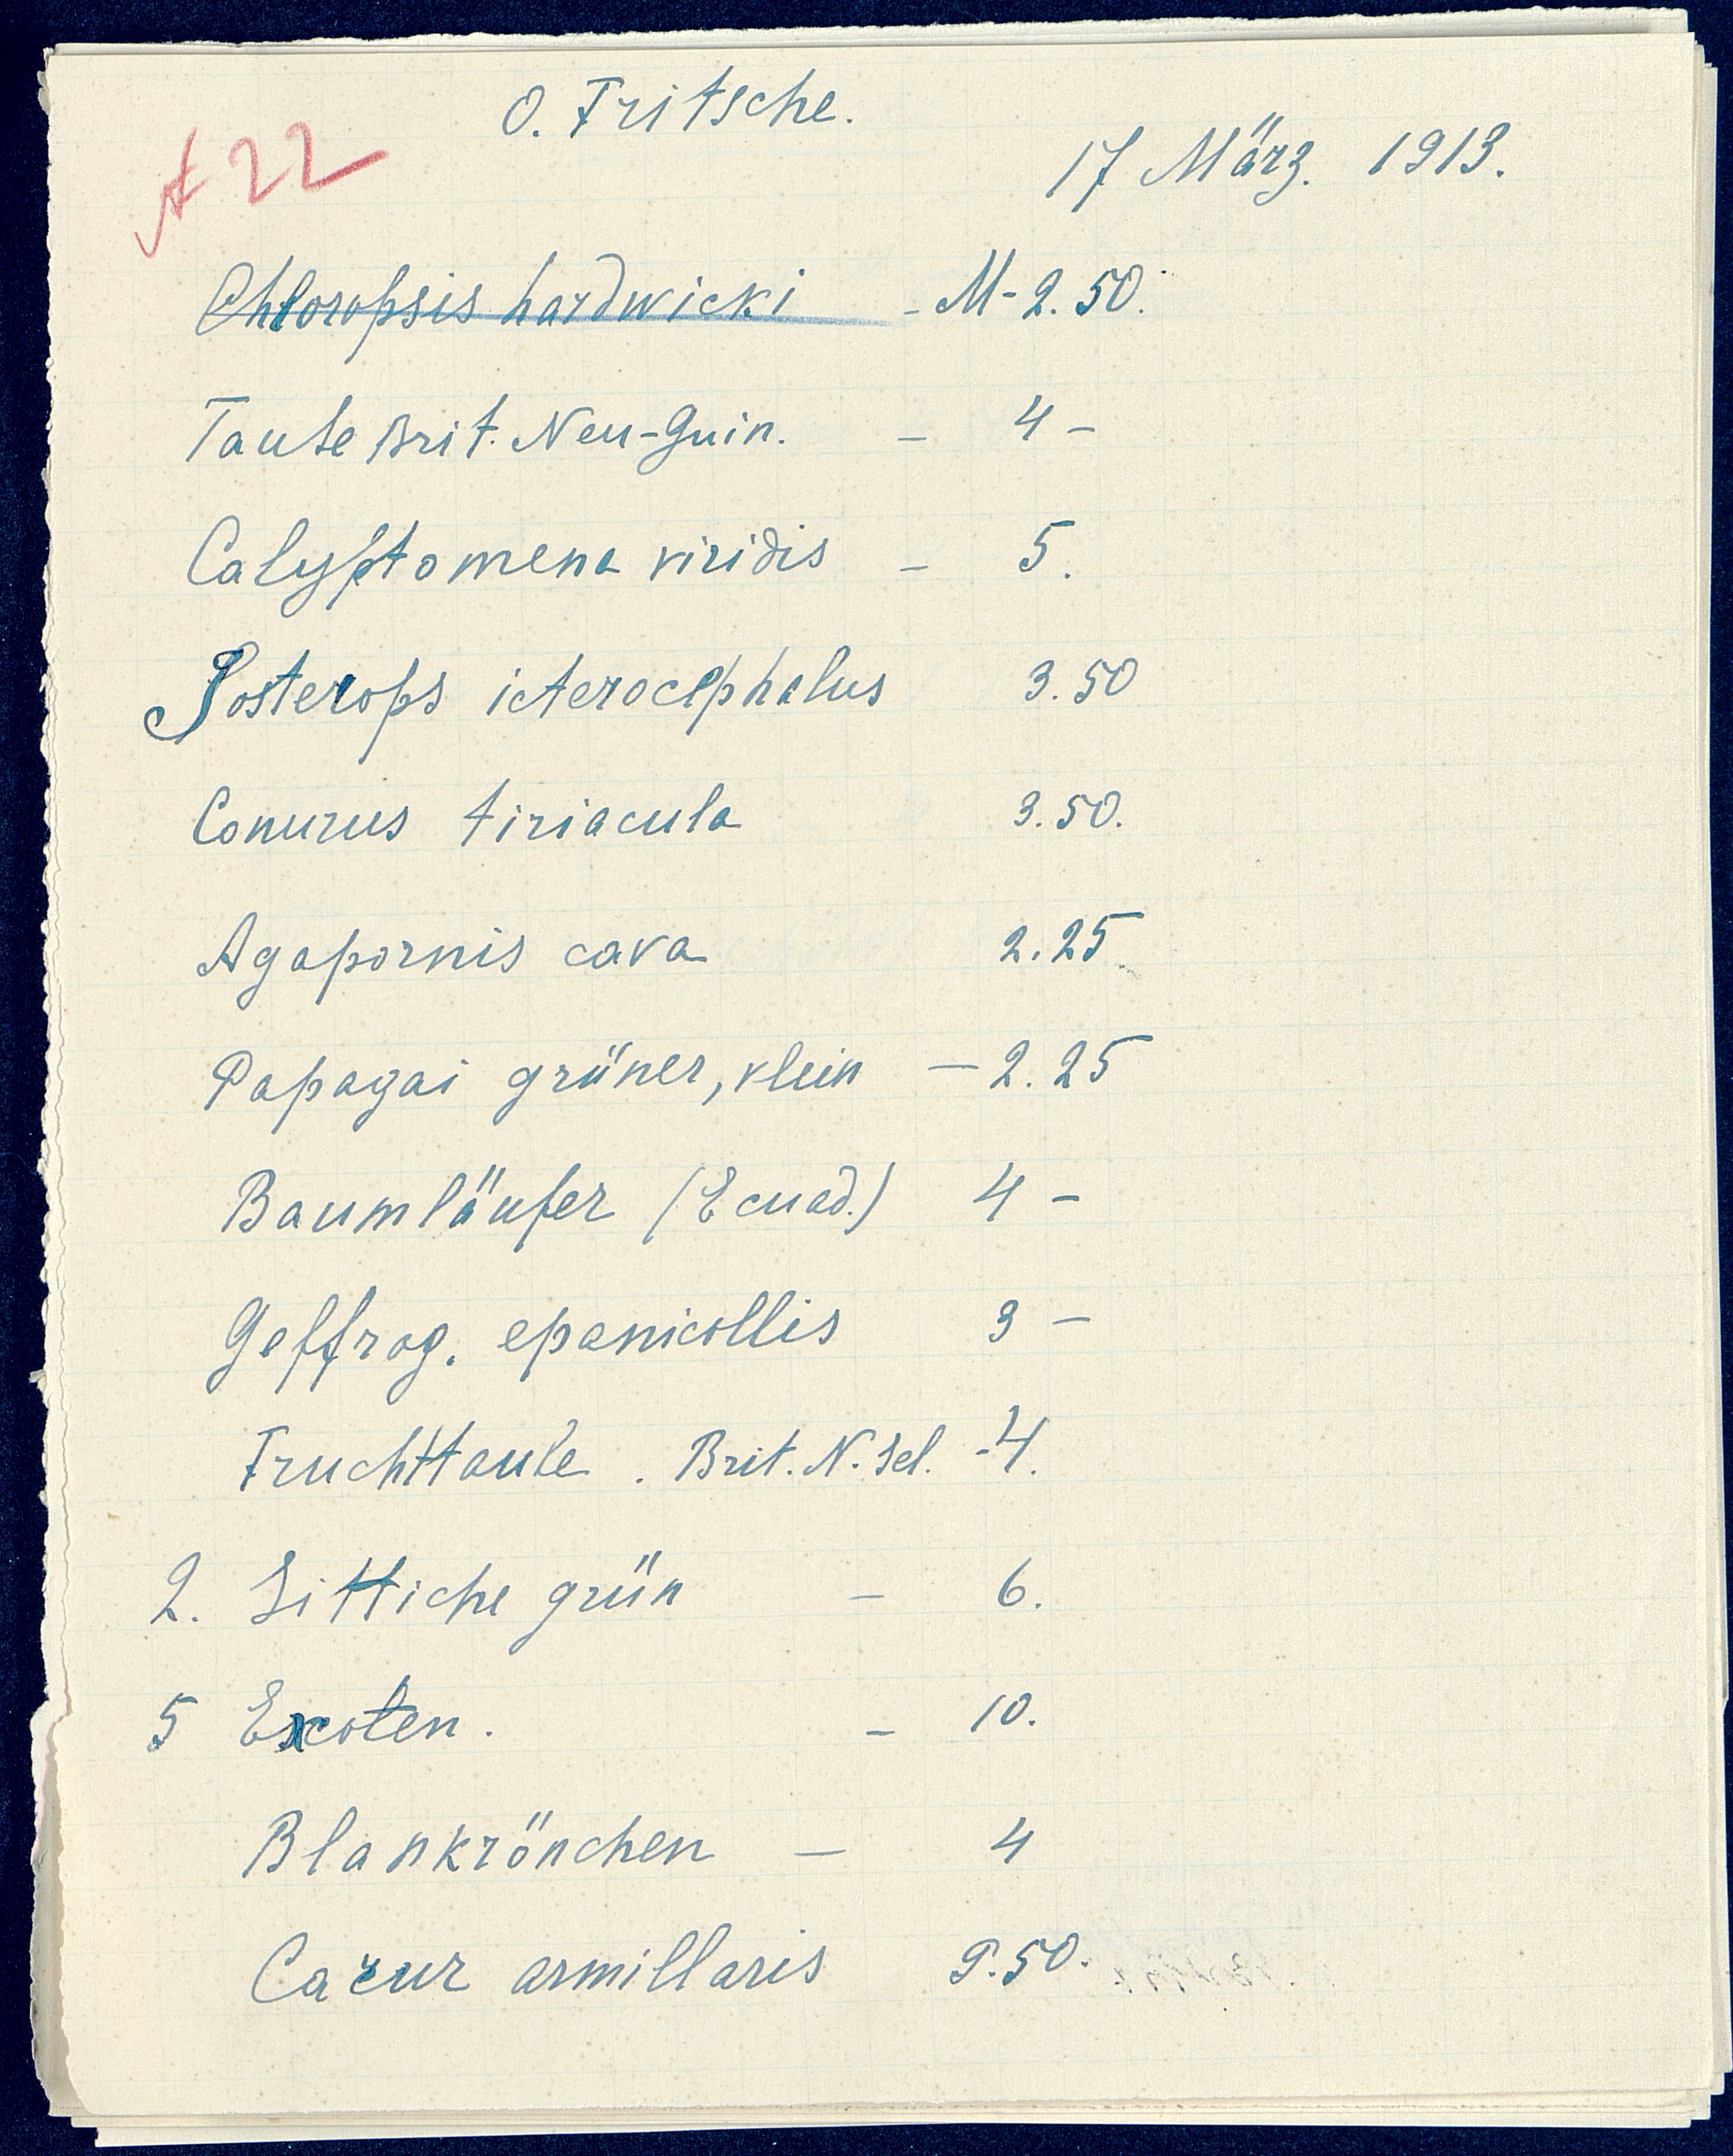 O. Fritsche.
A 22
17 März. 1913.
Chloropsis hardwicki - M - 2.50.
Taube Brit. Neu-Guin. - 4 -
Calyptomena viridis - 5.
Josterops icterocephalus 3.50
Conurus tiriacula 3.50.
Agapornis cava 2.25
Papagai grüner, klein - 2.25
Baumläufer (Ecuad.) 4 -
Geffrog. epanicollis 3 -
Fruchttaube . Brit. N. Sel. - 4.
2. Sittiche grün - 6.
5 Exoten. - 10.
Blankrönchen - 4
armillaris .50.